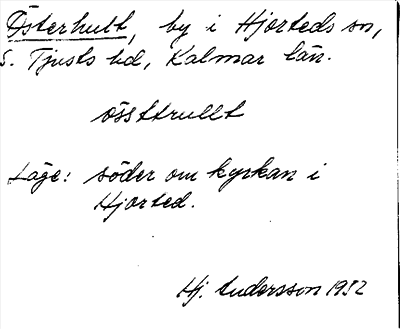 Österhult, by i Hjorteds sn,
S. Tjusts hd, Kalmar län.
össttrullt
Läge: söder om kyrkan i
Hjorted.
Hj. Andersson 1932